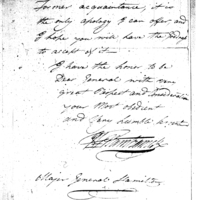 former acquaintance, it is
the only apology I can offer, and
I hope you will have the
to accept of it.
I have the honor to be
Dear General with very
great Respect and
your Most obedient
and humble
Major General